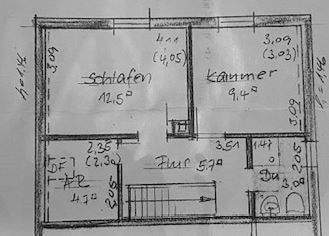 4.11
3.09
(4,05)
(3.03)
3,09
Schlafen
Kammer
12,5
9,4
h=1.46
3.09
2,35
3,51
1.47
DFF
(2,30)
Flur 5.7
AR
Du
2,05
4.7
2,05
3,0